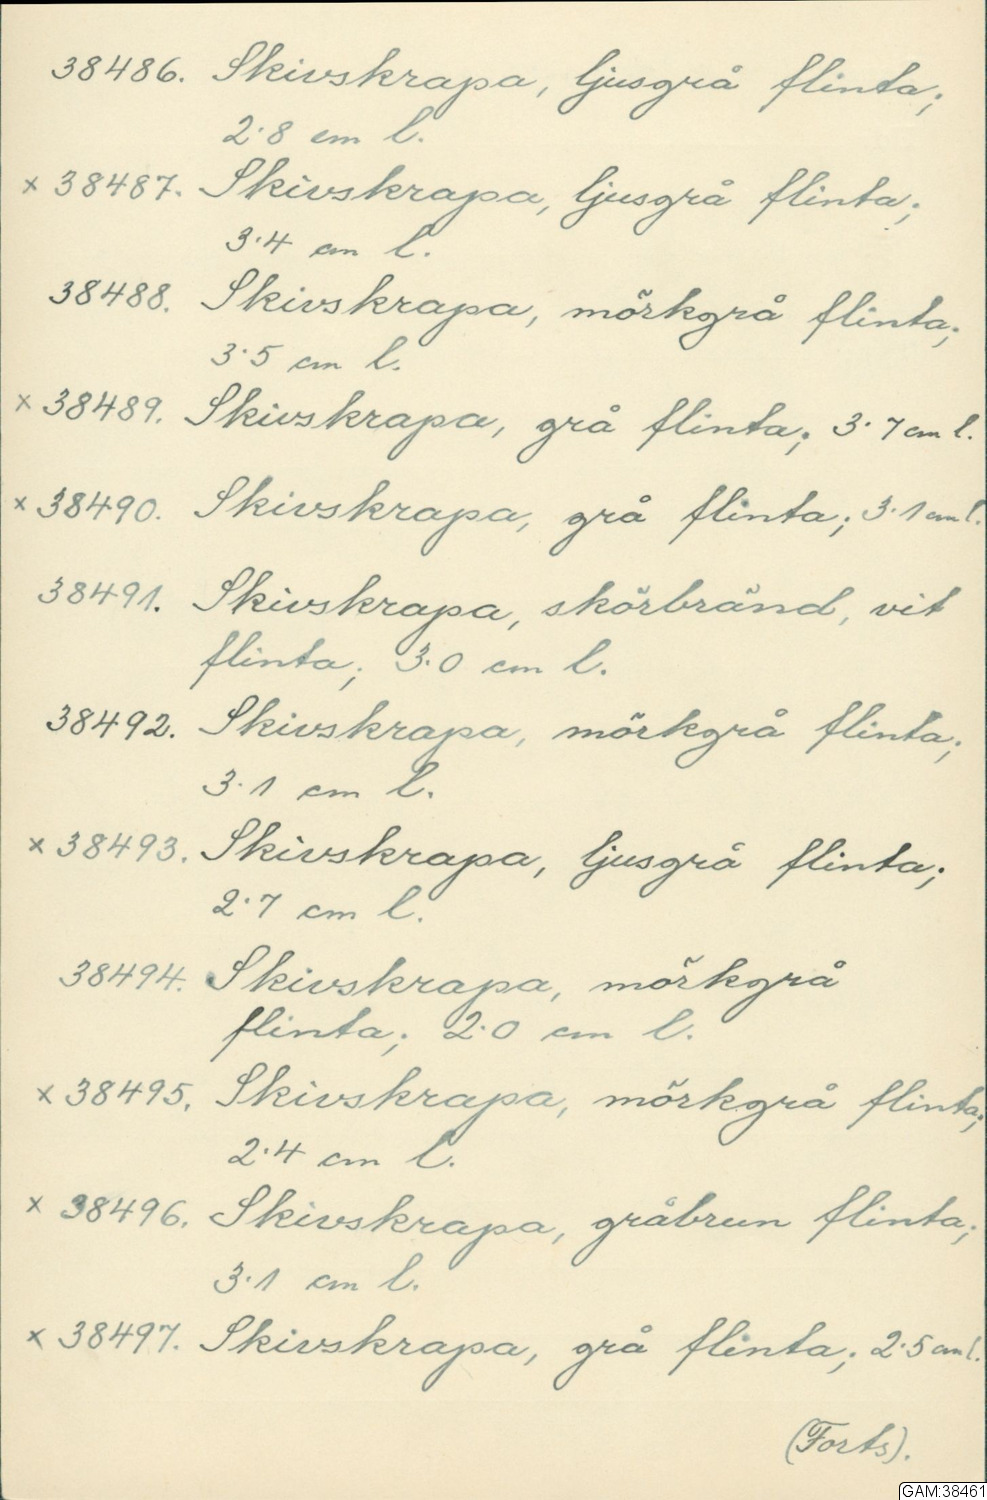 38486. Skivskrapa, ljusgrå flinta;
2·8 cm l.
x 38487. Skivskrapa, ljusgrå flinta;
3·4 cm l.
38488. Skivskrapa, mörkgrå flinta;
3·5 cm l.
x 38489. Skivskrapa, grå flinta; 3·7 cm l.
x 38490. Skivskrapa, grå flinta; 3·1 cm l.
38491. Skivskrapa, skörbränd, vit
flinta; 3·0 cm l.
38492. Skivskrapa, mörkgrå flinta;
3·1 cm l.
x 38493. Skivskrapa, ljusgrå flinta;
2·7 cm l.
38494. Skivskrapa, mörkgrå
flinta; 2·0 cm l.
x 38495. Skivskrapa, mörkgrå flinta;
2·4 cm l.
x 38496. Skivskrapa, gråbrun flinta;
3·1 cm l.
x 38497. Skivskrapa, grå flinta; 2·5 cm l.
(Forts).
GAM:38461